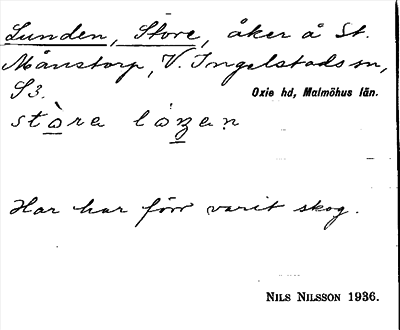 Lunden, Store, åker å St.
Månstorp, V. Ingelstads sn,
S3. Oxie hd, Malmöhus län.
Har har förr varit skog.
NILS NILSSON 1936.